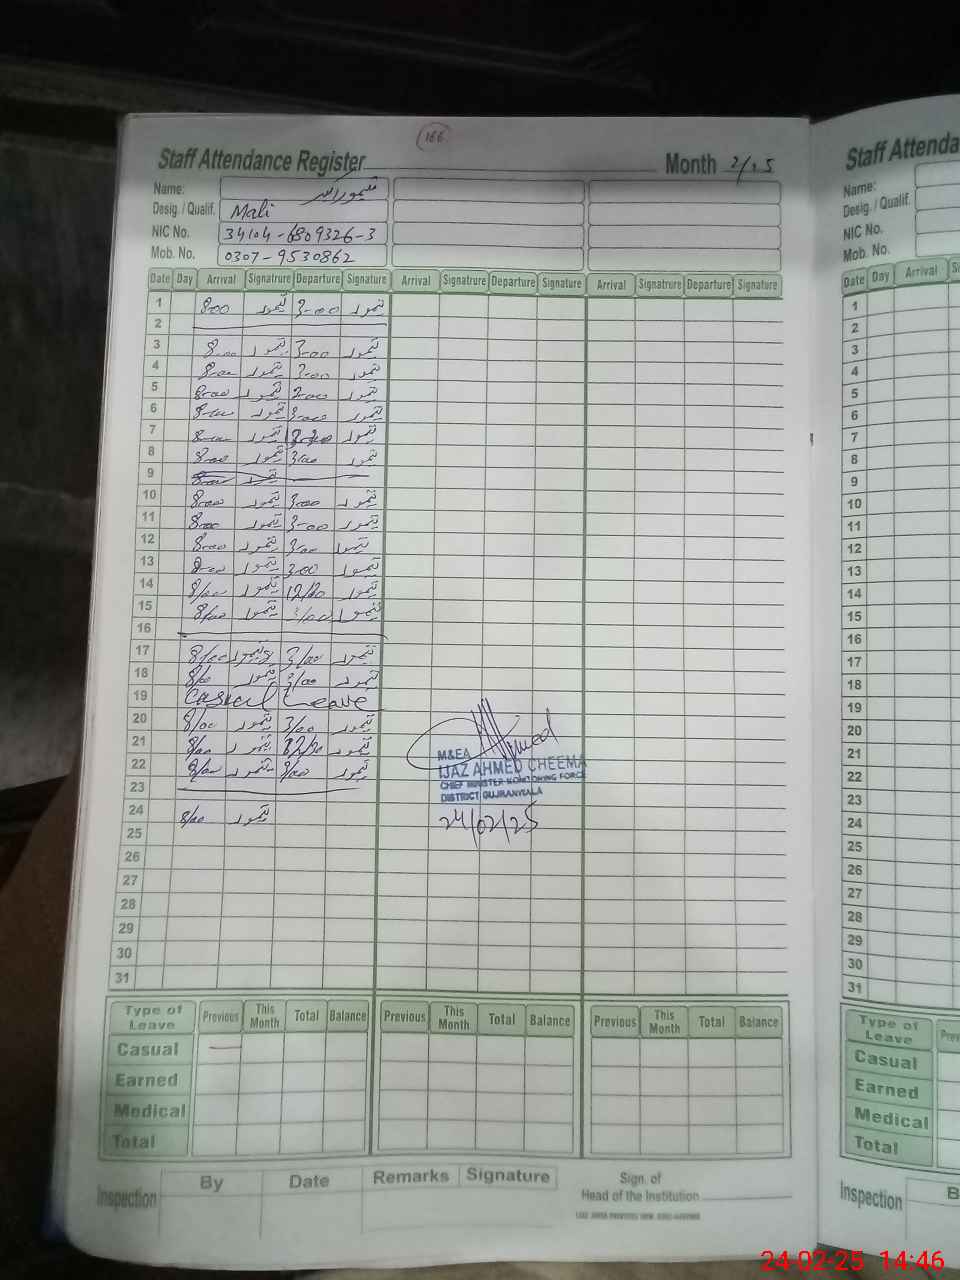 166
Staff Attendance Register Month 2/25
Name:
Desig. / Qualif. Mali
NIC No. 34104-6809326-3
Mob. No. 0307-9530862
Date Day Arrival Signatrure Departure Signature Arrival Signatrure Departure Signature Arrival Signatrure Departure Signature
1 8-00 تیمور 3-00 تیمور
2
3 8-00 تیمور 3-00 تیمور
4 8-00 تیمور 3-00 تیمور
5 8-00 تیمور 3-00 تیمور
6 8-00 تیمور 3-00 تیمور
7 8-00 تیمور تیمور
8 8-00 تیمور 3/00 تیمور
9 8-00 تیمور
10 8-00 تیمور 3-00 تیمور
11 8-00 تیمور 3-00 تیمور
12 8-00 تیمور 3-00 تیمور
13 8-00 تیمور 3-00 تیمور
14 8/00 تیمور 12/30 تیمور
15 8/00 تیمور 3/00 تیمور
16
17 8/00 تیمور 3/00 تیمور
18 8/00 تیمور 3/00 تیمور
19 Casual Leave
20 8/00 تیمور 3/00 تیمور
21 8/00 تیمور 12/30 تیمور
22 8/00 تیمور تیمور
23
24 8/00 تیمور
25
26
27
28
29
30
31
M&EA
IJAZ AHMED CHEEMA
CHIEF MINISTER MONITORING FORCE
DISTRICT GUJRANWALA
24/02/25
Type of Leave Previous This Month Total Balance Previous This Month Total Balance Previous This Month Total Balance
Casual
Earned
Medical
Total
Inspection By Date Remarks Signature
Sign. of
Head of the Institution
Staff Attenda
Name:
Desig. / Qualif.
NIC No.
Mob. No.
Date Day Arrival
1
2
3
4
5
6
7
8
9
10
11
12
13
14
15
16
17
18
19
20
21
22
23
24
25
26
27
28
29
30
31
Type of Leave Prev
Casual
Earned
Medical
Total
Inspection B
24-02-25 14:46